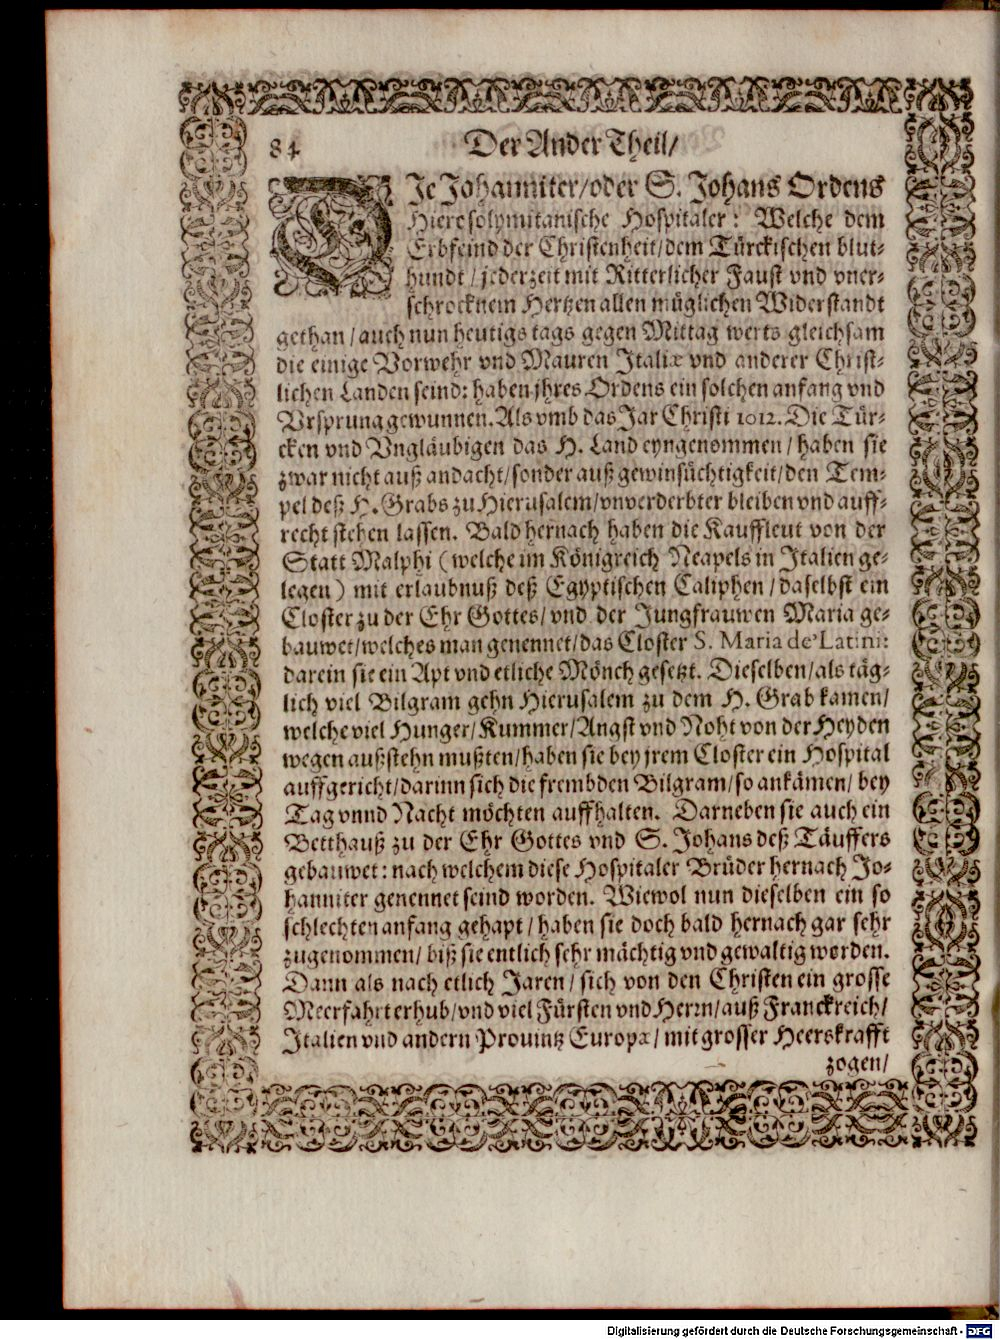 84 Der Ander Theil/
DJe Johanniter/oder S. Johans Ordens
Hierosolymitanische Hospitaler: Welche dem
Erbfeind der Christenheit/dem Türckischen blut-
hundt/jederzeit mit Ritterlicher Faust vnd vner-
schrocknem Hertzen allen müglichen Widerstandt
gethan/auch nun heutigs tags gegen Mittag werts gleichsam
die einige Vorwehr vnd Mauren Italiæ vnd anderer Christ-
lichen Landen seind: haben jhres Ordens ein solchen anfang vnd
Vrsprung gewunnen. Als vmb das Jar Christi 1012. Die Tür-
cken vnd Vngläubigen das H. Land eyngenommen/haben sie
zwar nicht auß andacht/sonder auß gewinsüchtigkeit/den Tem-
pel deß H. Grabs zu Hierusalem/vnverderbter bleiben vnd auff-
recht stehen lassen. Bald hernach haben die Kauffleut von der
Statt Malphi (welche im Königreich Neapels in Italien ge-
legen) mit erlaubnuß deß Egyptischen Caliphen/daselbst ein
Closter zu der Ehr Gottes/vnd der Jungfrauwen Maria ge-
bauwet/welches man genennet/das Closter S. Maria de Latini:
darein sie ein Apt vnd etliche Mönch gesetzt. Dieselben/als täg-
lich viel Bilgram gehn Hierusalem zu dem H. Grab kamen/
welche viel Hunger/Kummer/Angst vnd Noht von der Heyden
wegen außstehn mußten/haben sie bey jrem Closter ein Hospital
auffgericht/darinn sich die frembden Bilgram/so ankämen/bey
Tag vnnd Nacht möchten auffhalten. Darneben sie auch ein
Betthauß zu der Ehr Gottes vnd S. Johans deß Täuffers
gebauwet: nach welchem diese Hospitaler Brüder hernach Jo-
hanniter genennet seind worden. Wiewol nun dieselben ein so
schlechten anfang gehapt/haben sie doch bald hernach gar sehr
zugenommen/biß sie entlich sehr mächtig vnd gewaltig worden.
Dann als nach etlich Jaren/sich von den Christen ein grosse
Meerfahrt erhub/vnd viel Fürsten vnd Herrn/auß Franckreich/
Italien vnd andern Prouintz Europæ/mit grosser Heerskrafft
zogen/
Digitalisierung gefördert durch die Deutsche Forschungsgemeinschaft - DFG